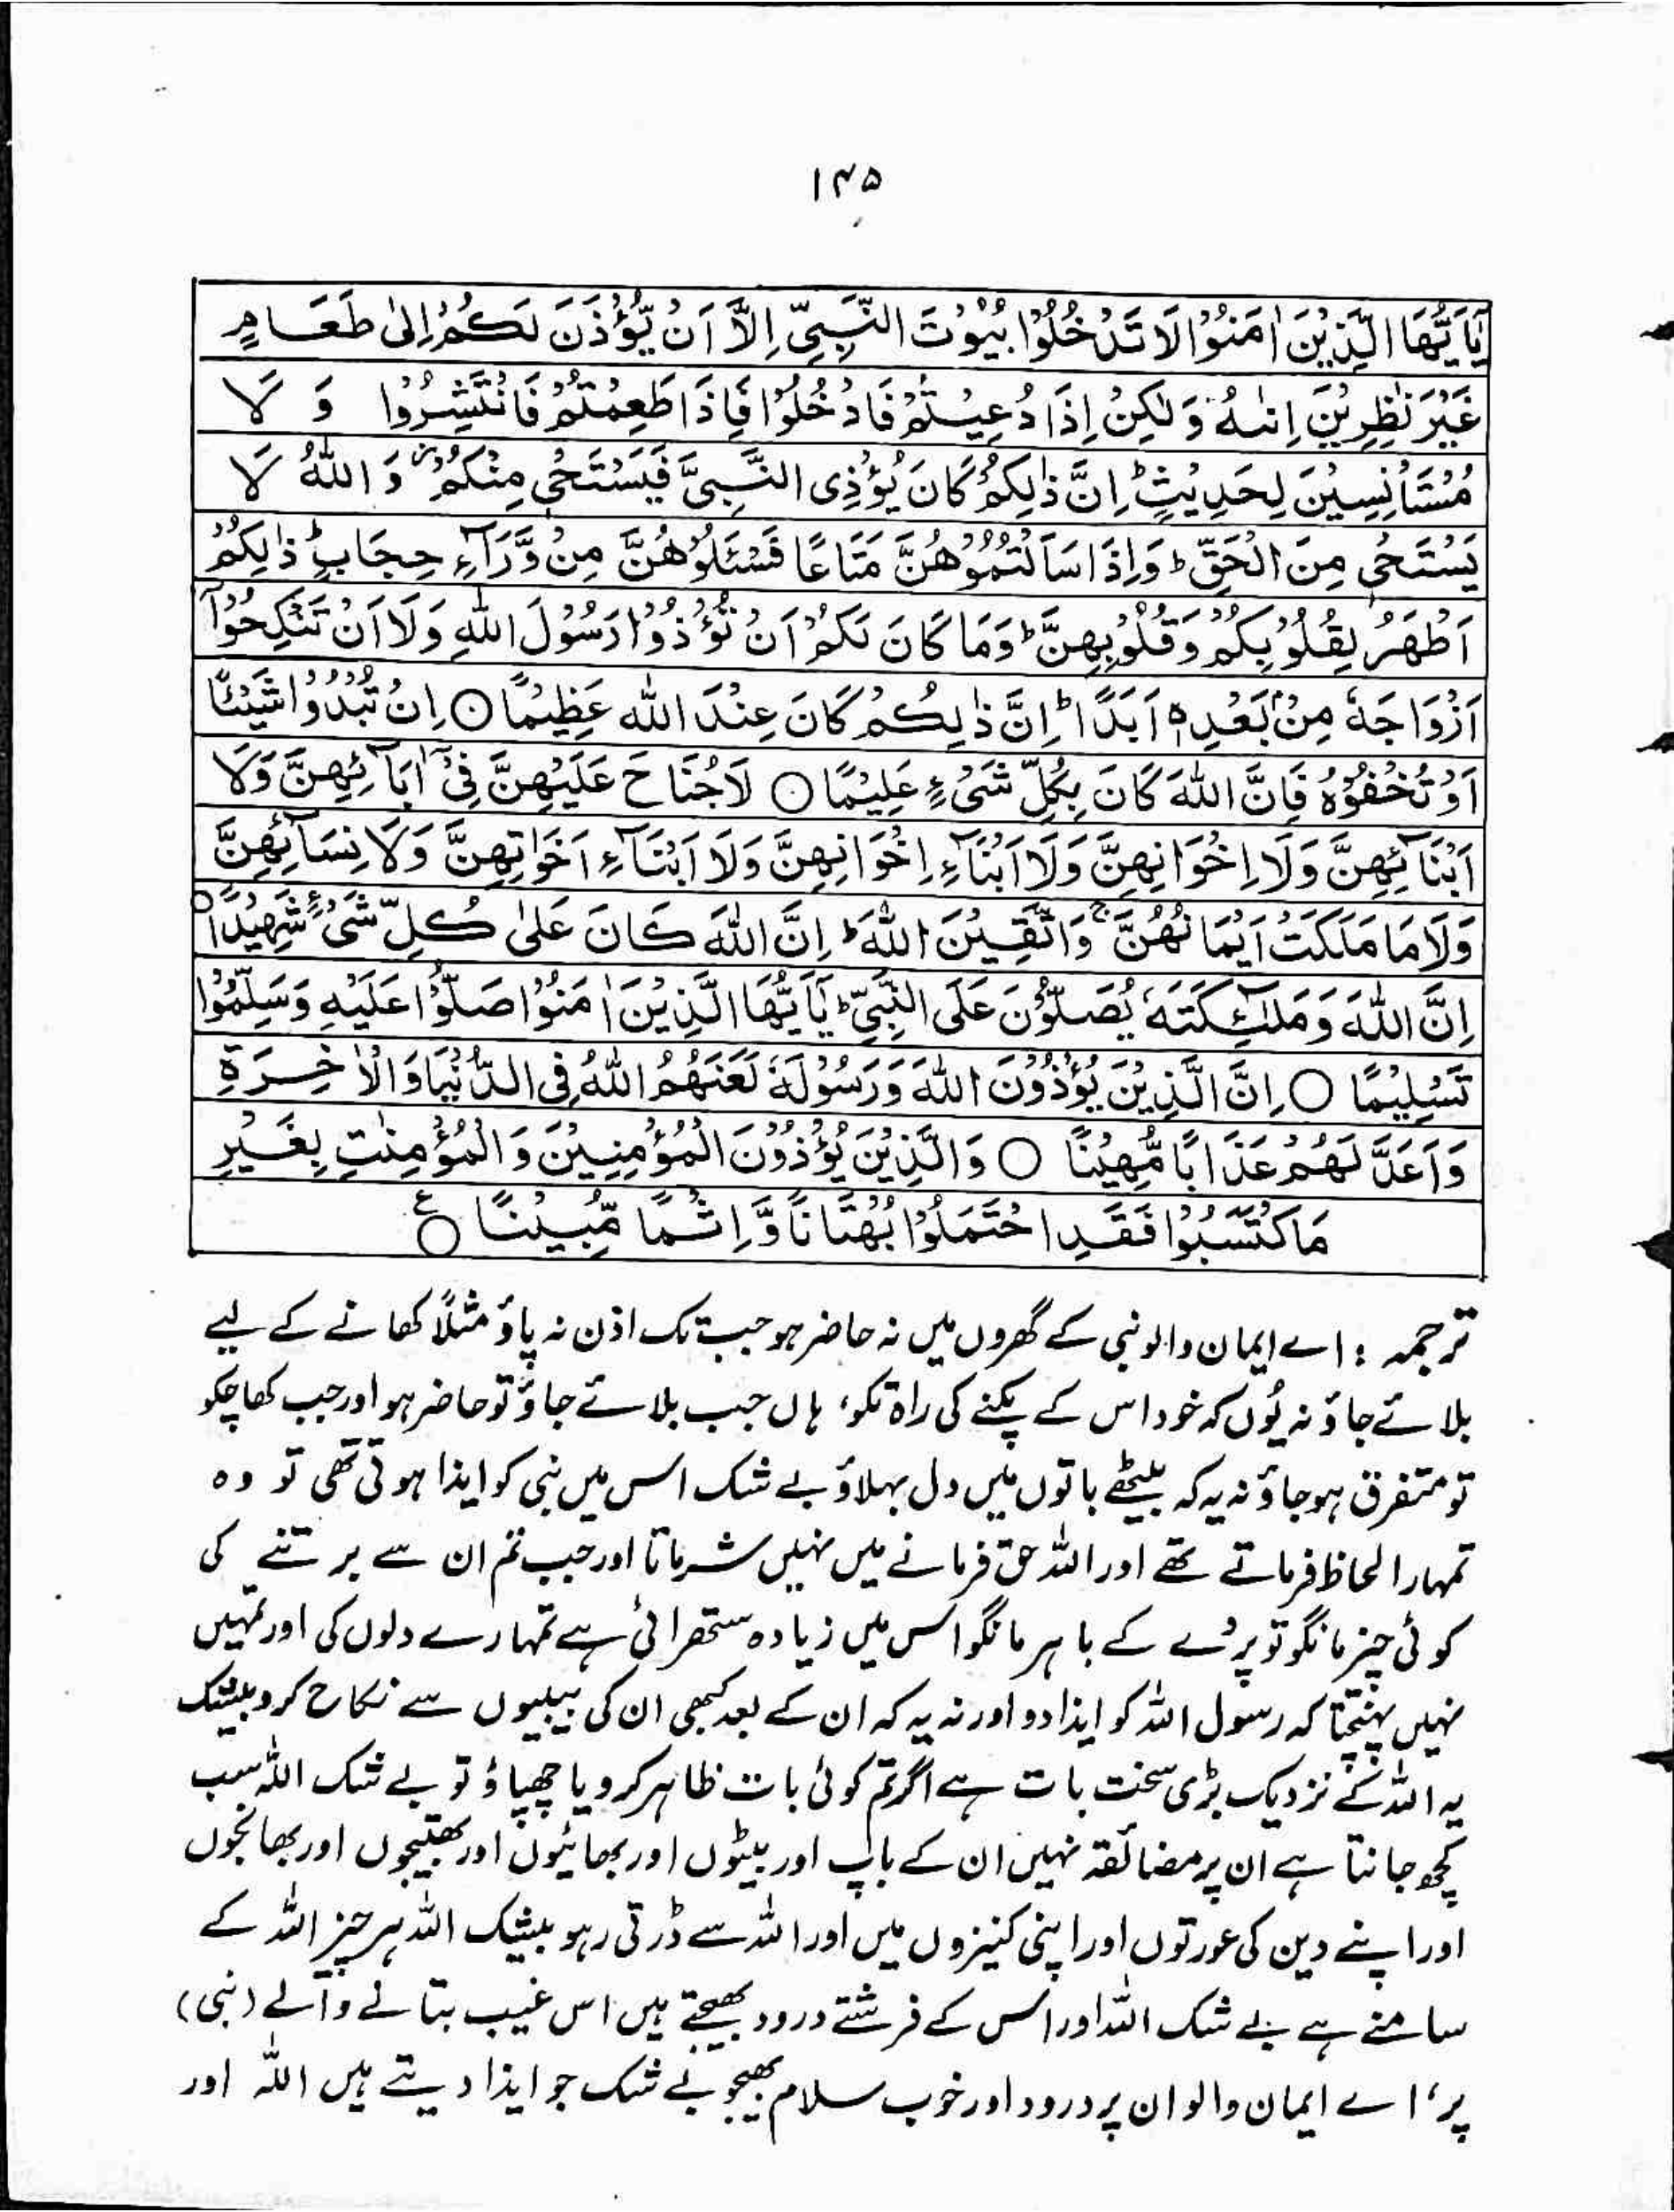 ۱۴۵
يَٰٓاَيُّهَا الَّذِيْنَ اٰمَنُوْا لَا تَدْخُلُوْا بُيُوْتَ النَّبِيِّ اِلَّآ اَنْ يُّؤْذَنَ لَكُمْ اِلٰى طَعَامٍ
غَيْرَ نٰظِرِيْنَ اِنٰىهُ وَلٰكِنْ اِذَا دُعِيْتُمْ فَادْخُلُوْا فَاِذَا طَعِمْتُمْ فَانْتَشِرُوْا وَ لَا
مُسْتَاْنِسِيْنَ لِحَدِيْثٍ ؕ اِنَّ ذٰلِكُمْ كَانَ يُؤْذِى النَّبِيَّ فَيَسْتَحْيٖ مِنْكُمْ ؗ وَ اللّٰهُ لَا
يَسْتَحْيٖ مِنَ الْحَقِّ ؕ وَ اِذَا سَاَلْتُمُوْهُنَّ مَتَاعًا فَسْئَلُوْهُنَّ مِنْ وَّرَآءِ حِجَابٍ ؕ ذٰلِكُمْ
اَطْهَرُ لِقُلُوْبِكُمْ وَ قُلُوْبِهِنَّ ؕ وَمَا كَانَ لَكُمْ اَنْ تُؤْذُوْا رَسُوْلَ اللّٰهِ وَلَا اَنْ تَنْكِحُوْٓا
اَزْوَاجَهٗ مِنْۢ بَعْدِهٖ اَبَدًا ؕ اِنَّ ذٰلِكُمْ كَانَ عِنْدَ اللّٰه عَظِيْمًا ○ اِنْ تُبْدُوْا شَيْئًا
اَوْ تُخْفُوْهُ فَاِنَّ اللّٰهَ كَانَ بِكُلِّ شَىْءٍ عَلِيْمًا ○ لَا جُنَاحَ عَلَيْهِنَّ فِىْٓ اٰبَآئِهِنَّ وَلَا
اَبْنَآئِهِنَّ وَلَا اِخْوَانِهِنَّ وَلَا اَبْنَآءِ اِخْوَانِهِنَّ وَلَا اَبْنَآءِ اَخَوٰتِهِنَّ وَلَا نِسَآئِهِنَّ
وَلَا مَا مَلَكَتْ اَيْمَانُهُنَّ ۚ وَاتَّقِيْنَ اللّٰهَ ؕ اِنَّ اللّٰهَ كَانَ عَلٰى كُلِّ شَىْءٍ شَهِيْدًا ○
اِنَّ اللّٰهَ وَ مَلٰٓئِكَتَهٗ يُصَلُّوْنَ عَلَى النَّبِيِّ ؕ يٰٓاَيُّهَا الَّذِيْنَ اٰمَنُوْا صَلُّوْا عَلَيْهِ وَسَلِّمُوْا
تَسْلِيْمًا ○ اِنَّ الَّذِيْنَ يُؤْذُوْنَ اللّٰهَ وَ رَسُوْلَهٗ لَعَنَهُمُ اللّٰهُ فِى الدُّنْيَا وَ الْاٰخِرَةِ
وَاَعَدَّ لَهُمْ عَذَابًا مُّهِيْنًا ○ وَالَّذِيْنَ يُؤْذُوْنَ الْمُؤْمِنِيْنَ وَ الْمُؤْمِنٰتِ بِغَيْرِ
مَا كْتَسَبُوْا فَقَدِ احْتَمَلُوْا بُهْتَانًا وَّ اِثْمًا مُّبِيْنًا ○ ع
ترجمہ : اے ایمان والو نبی کے گھروں میں نہ حاضر ہو جب تک اذن نہ پاؤ مثلًا کھانے کے لیے
بلائے جاؤ نہ یُوں کہ خود اس کے پکنے کی راہ تکو، ہاں جب بلائے جاؤ تو حاضر ہو اور جب کھا چکو
تو متفرق ہو جاؤ نہ یہ کہ بیٹھے باتوں میں دل بہلاؤ بے شک اس میں نبی کو ایذا ہوتی تھی تو وہ
تمہارا لحاظ فرماتے تھے اور اللہ حق فرمانے میں نہیں شرماتا اور جب تم ان سے برتنے کی
کوئی چیز مانگو تو پردے کے باہر مانگو اس میں زیادہ ستھرائی ہے تمہارے دلوں کی اور تمہیں
نہیں پہنچتا کہ رسول اللہ کو ایذا دو اور نہ یہ کہ ان کے بعد کبھی ان کی بیبیوں سے نکاح کرو بیشک
یہ اللہ کے نزدیک بڑی سخت بات ہے اگر تم کوئی بات ظاہر کرو یا چھپاؤ تو بے شک اللہ سب
کچھ جانتا ہے ان پر مضائقہ نہیں ان کے باپ اور بیٹوں اور بھائیوں اور بھتیجوں اور بھانجوں
اور اپنے دین کی عورتوں اور اپنی کنیزوں میں اور اللہ سے ڈرتی رہو بیشک اللہ ہر چیز اللہ کے
سامنے ہے بے شک اللہ اور اس کے فرشتے درود بھیجتے ہیں اس غیب بتانے والے (نبی)
پر، اے ایمان والو ان پر درود اور خوب سلام بھیجو بے شک جو ایذا دیتے ہیں اللہ اور